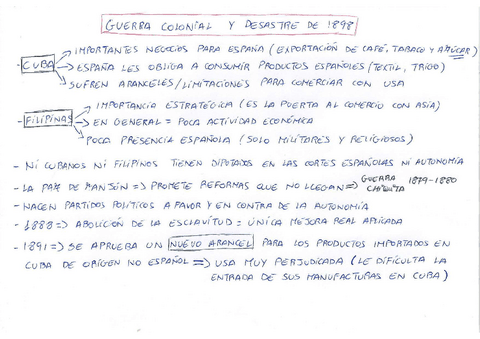 GUERRA COLONIAL Y DESASTRE DE 1898
- CUBA → IMPORTANTES NEGOCIOS PARA ESPAÑA (EXPORTACIÓN DE CAFÉ, TABACO Y AZÚCAR)
→ ESPAÑA LES OBLIGA A CONSUMIR PRODUCTOS ESPAÑOLES (TEXTIL, TRIGO)
→ SUFREN ARANCELES/LIMITACIONES PARA COMERCIAR CON USA
- FILIPINAS → IMPORTANCIA ESTRATÉGICA (ES LA PUERTA AL COMERCIO CON ASIA)
→ EN GENERAL = POCA ACTIVIDAD ECONÓMICA
→ POCA PRESENCIA ESPAÑOLA (SOLO MILITARES Y RELIGIOSOS)
- NI CUBANOS NI FILIPINOS TIENEN DIPUTADOS EN LAS CORTES ESPAÑOLAS NI AUTONOMÍA
- LA PAZ DE ZANJÓN => PROMETE REFORMAS QUE NO LLEGAN => GUERRA CHIQUITA 1879-1880
- NACEN PARTIDOS POLÍTICOS A FAVOR Y EN CONTRA DE LA AUTONOMÍA
- 1888 => ABOLICIÓN DE LA ESCLAVITUD = ÚNICA MEJORA REAL APLICADA
- 1891 => SE APRUEBA UN NUEVO ARANCEL PARA LOS PRODUCTOS IMPORTADOS EN
CUBA DE ORIGEN NO ESPAÑOL => USA MUY PERJUDICADA (LE DIFICULTA LA
ENTRADA DE SUS MANUFACTURAS EN CUBA)